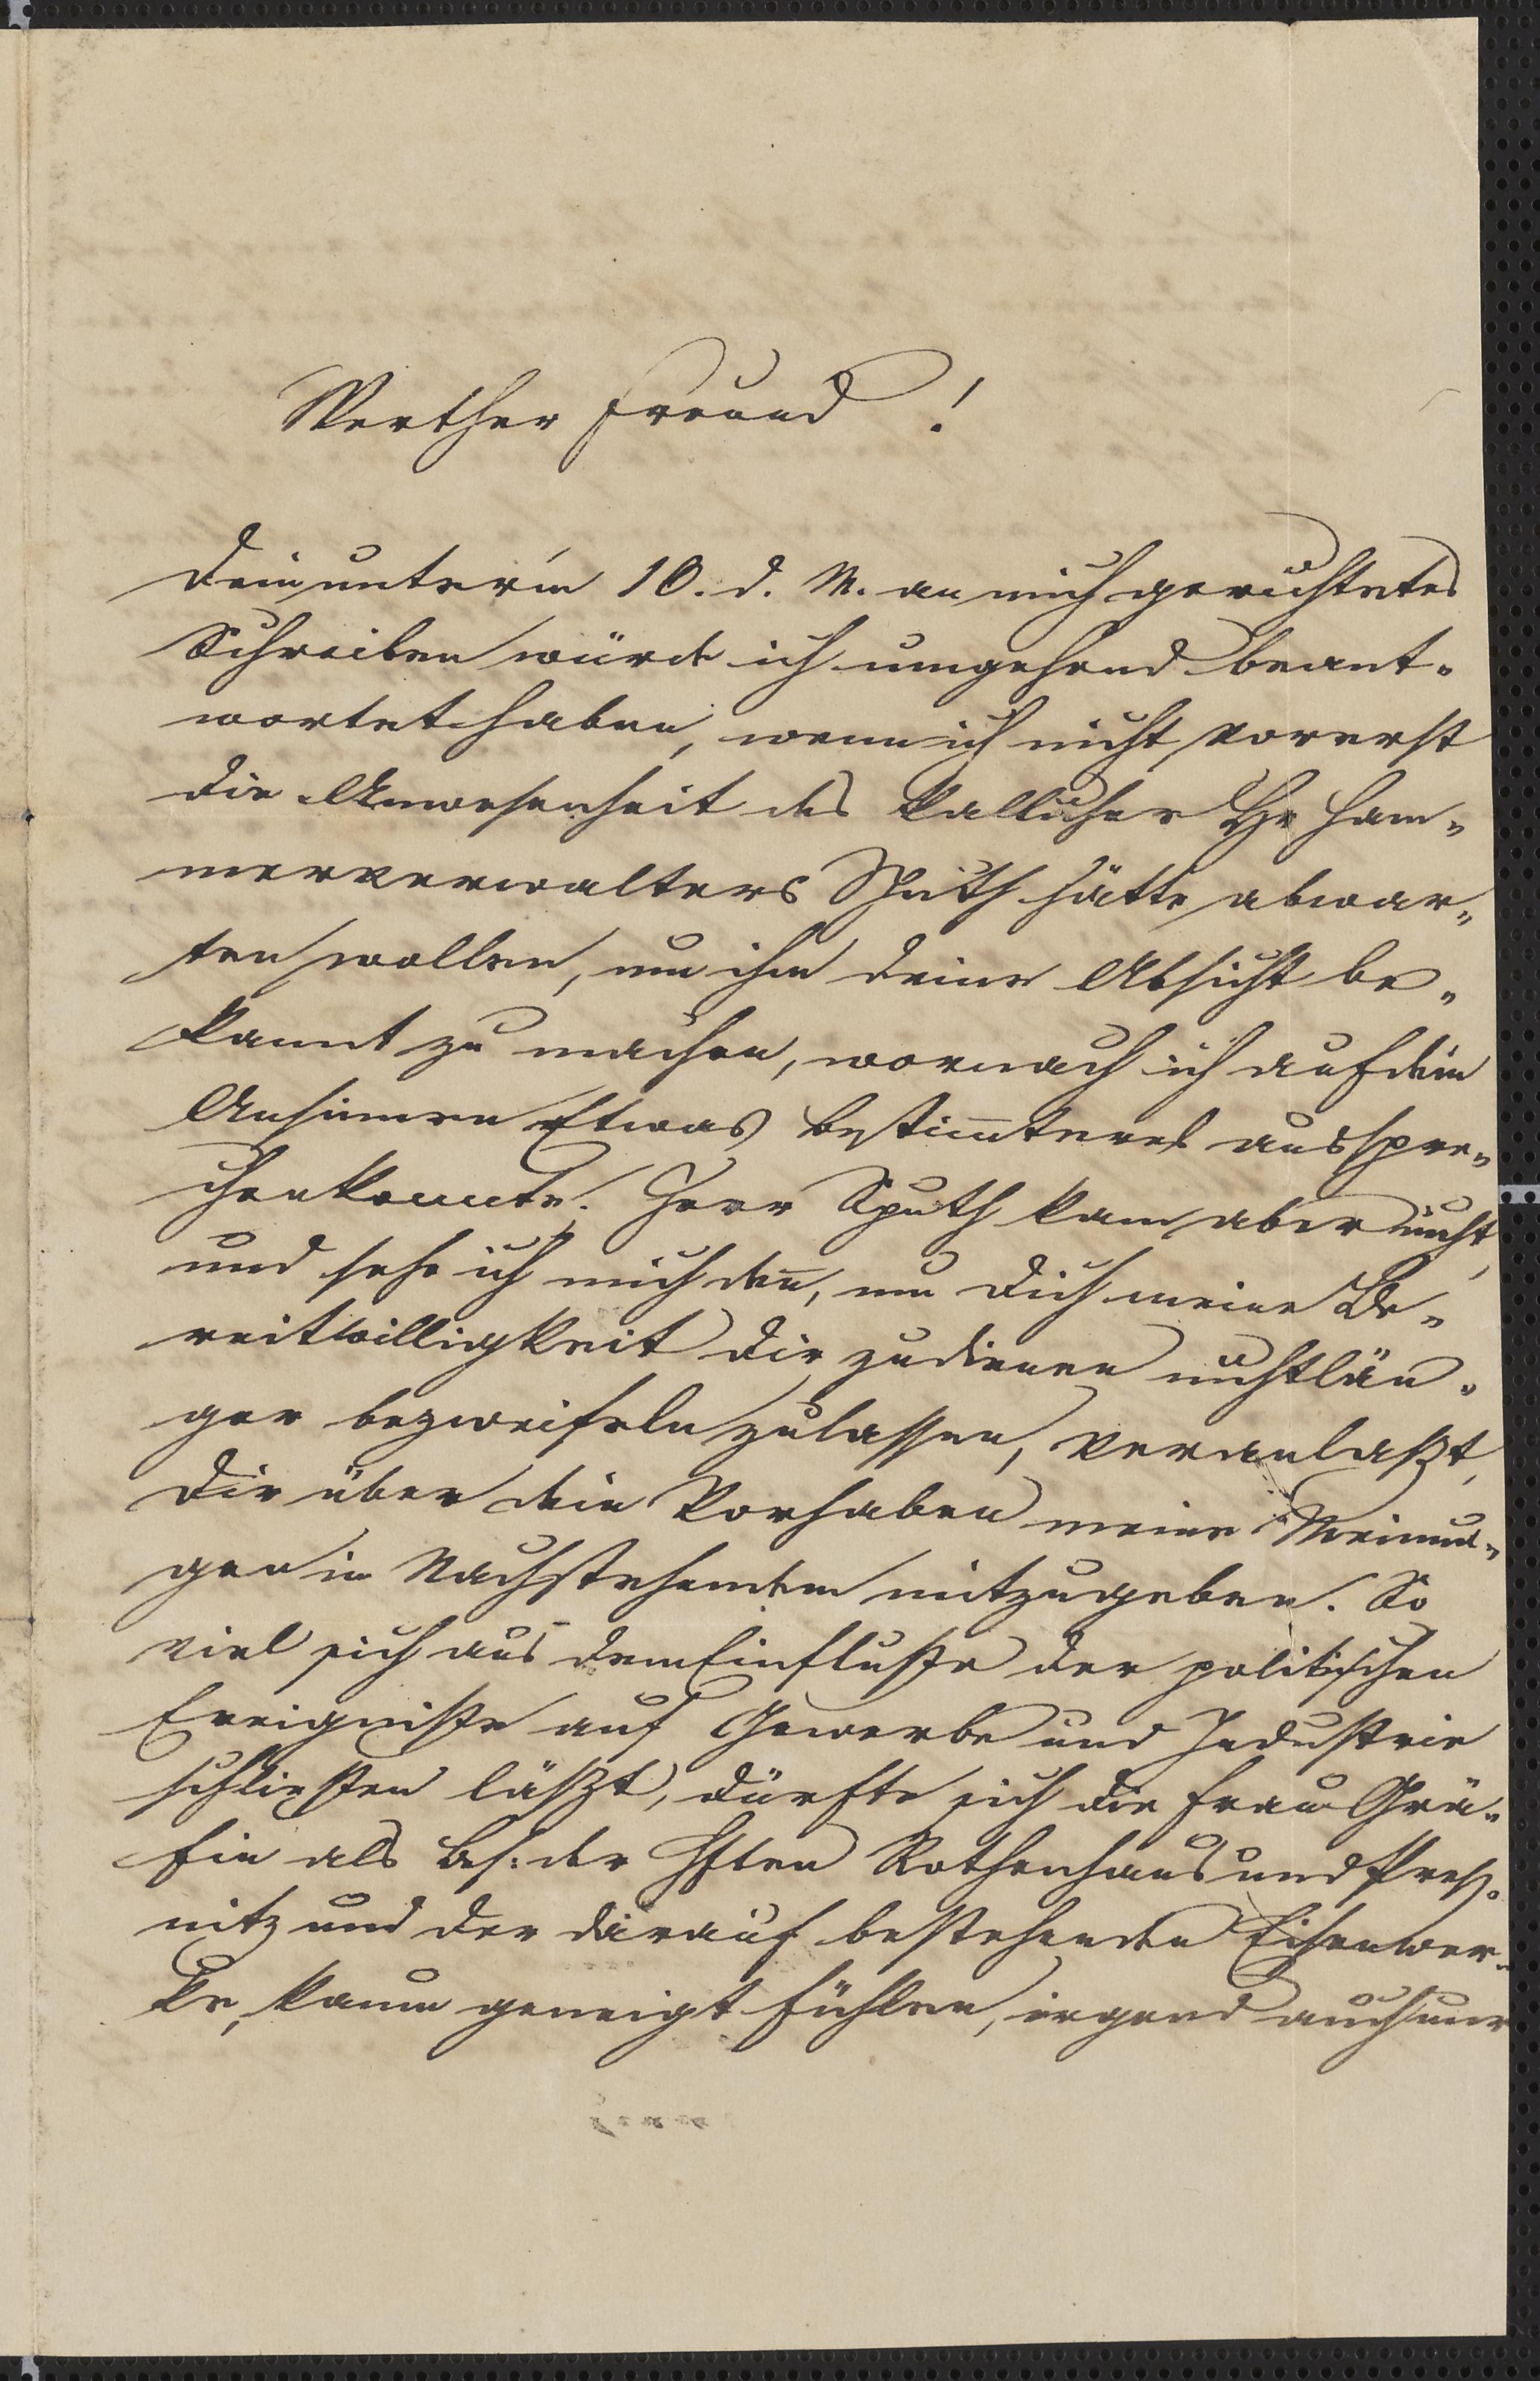 Werther Freund!
Dein unter'm 10. d. M. an mich gerichtetes
Schreiben würde ich umgehend beant-
wortet haben, wenn ich nicht vorerst
die Anwesenheit des Kallicher Hr Ham-
merverwalters Sputh hätte abwar-
ten wollen, um ihm deine Absicht be-
kannt zu machen, wornach ich auf dein
Ansinnen Etwas bestim̄teres ausspre-
chen konnte. Herr Sputh kam aber nicht,
und sehe ich mich den̄, um dich meine Be-
reitwilligkeit dir zu dienen nicht län-
ger bezweifeln zu lassen, veranlaßt,
dir über dein Vorhaben meine Meinun-
gen in Nachstehendem mitzugeben. So
viel sich aus dem Einfluße der politischen
Ereigniße auf Gewerbe und Industrie
schließen läßt, dürfte sich die Frau Grä-
fin als Bes: der Hften Rothenhaus und Preß-
nitz und der darauf bestehenden Eisenwer-
ke, kaum geneigt fühlen, irgend auch nur